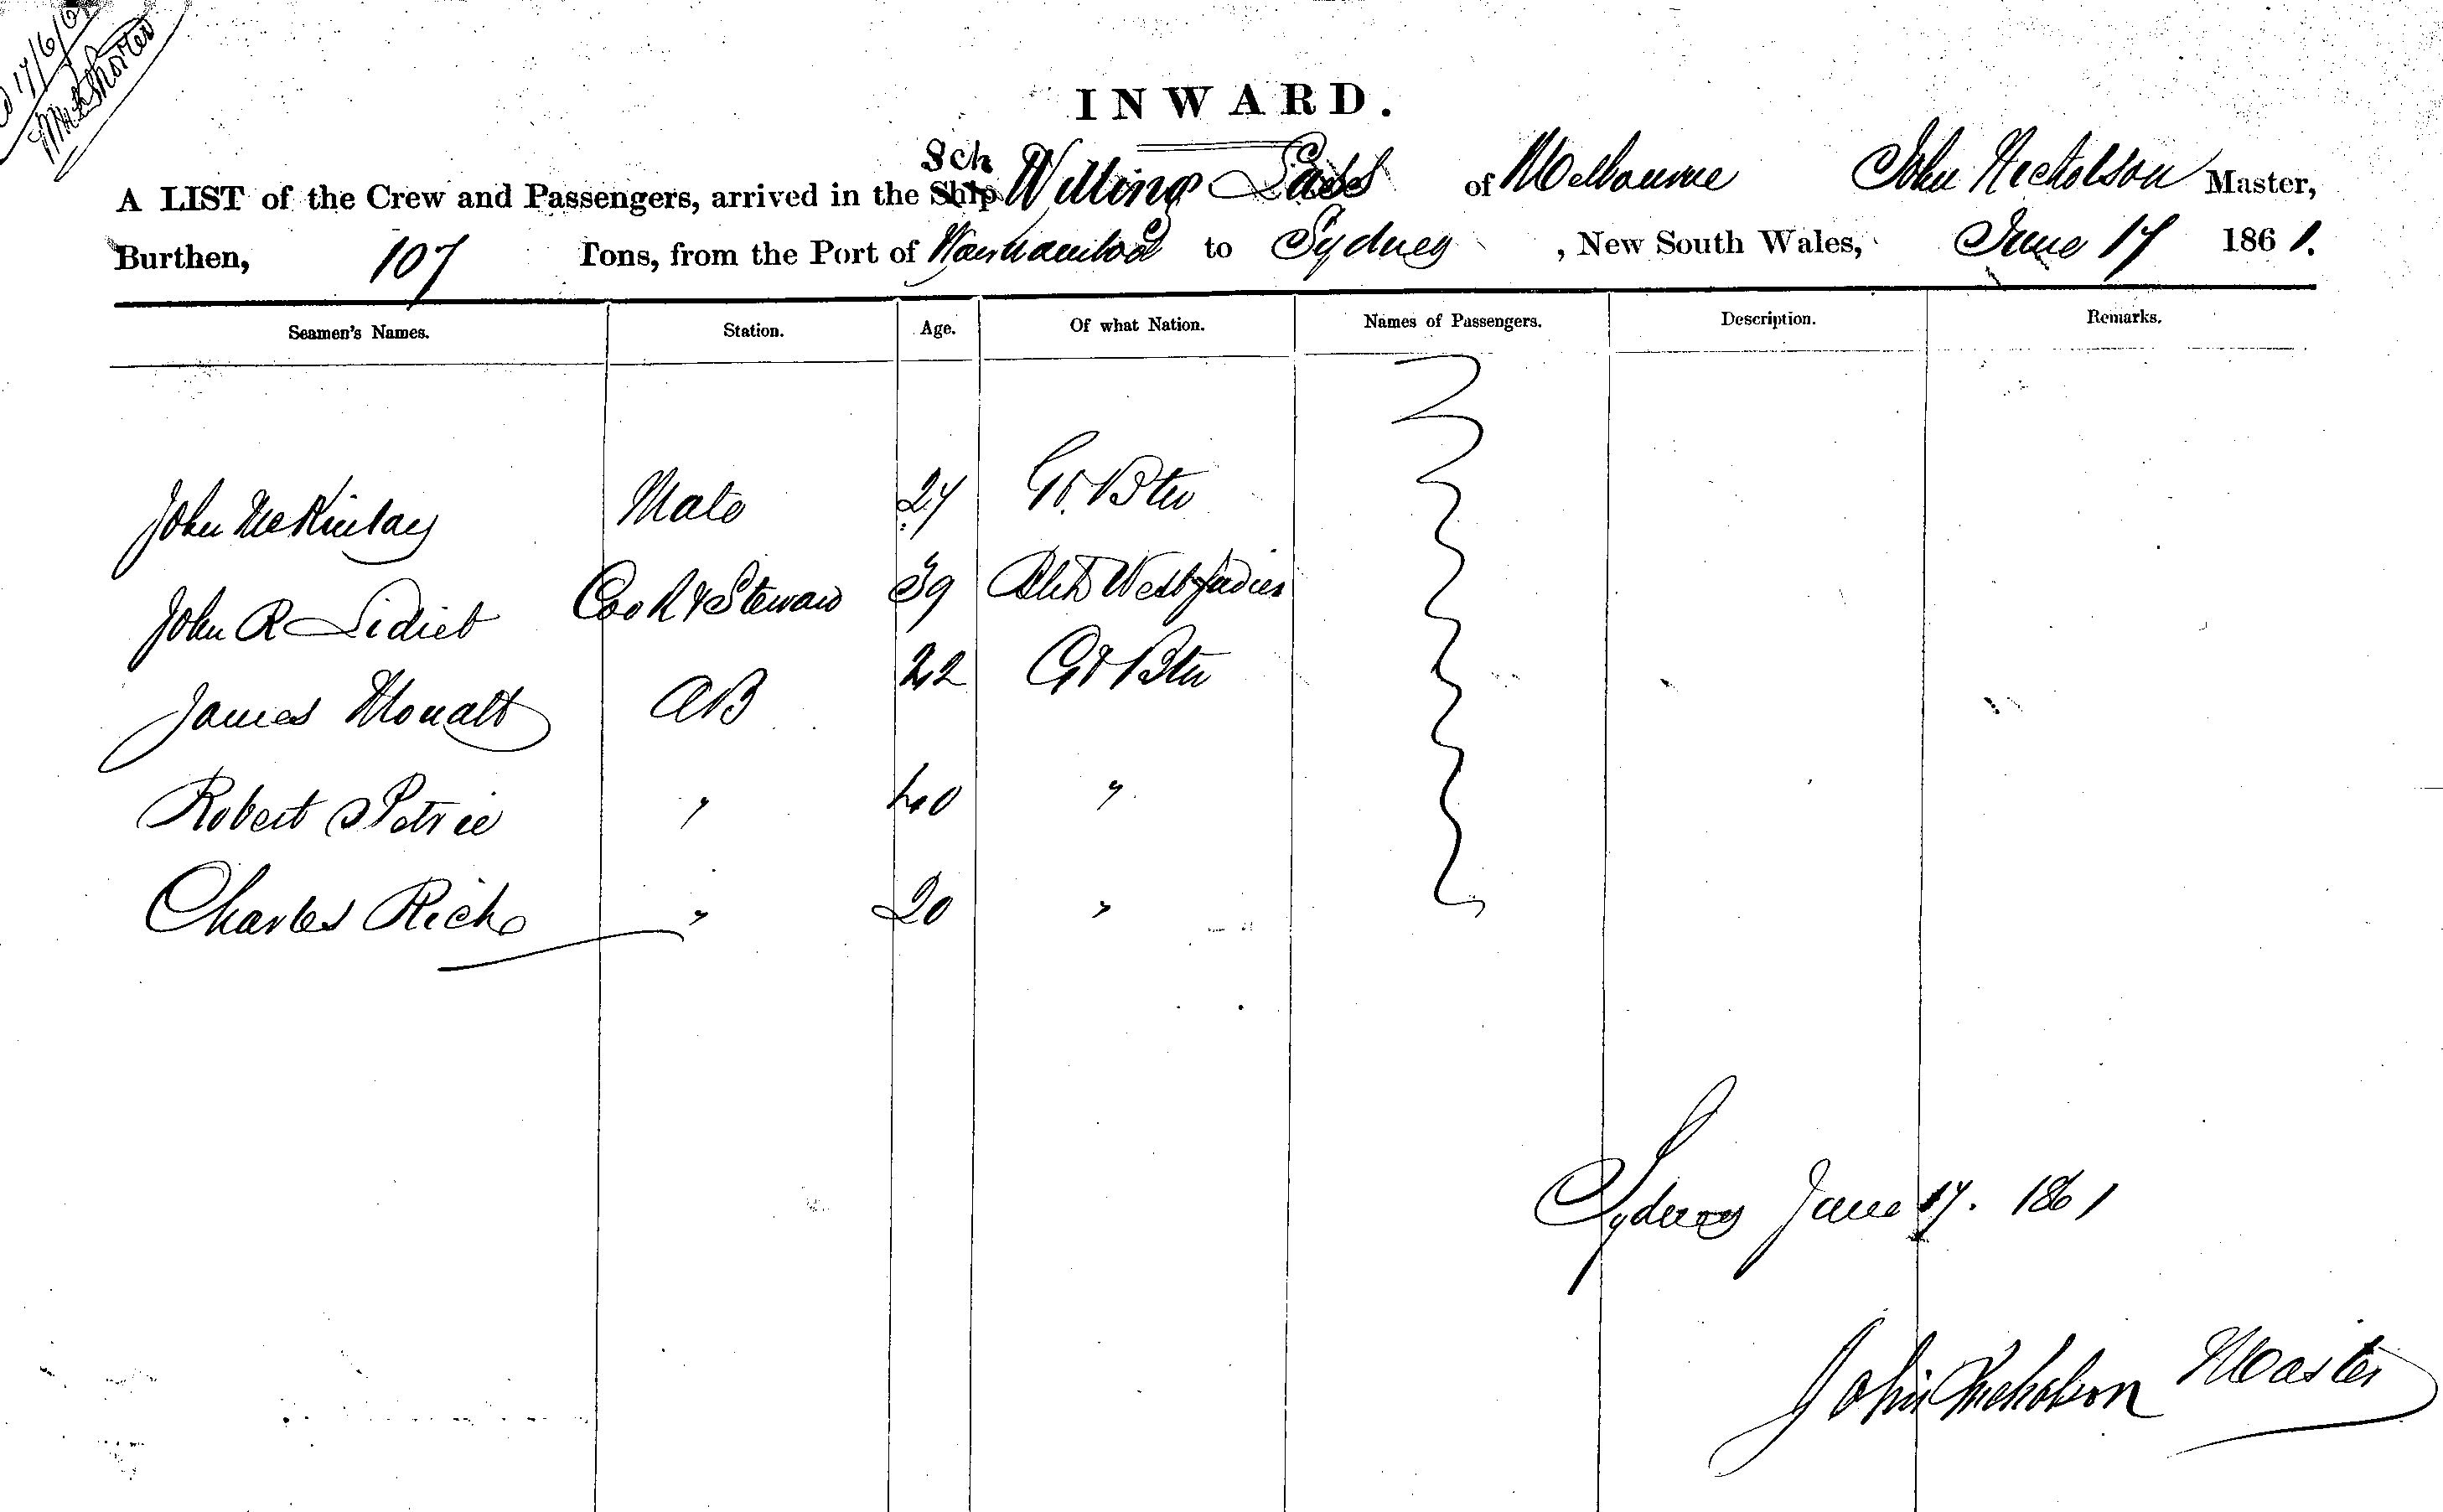 17/6/6
INWARD.
Sch
A LIST of the Crew and Passengers, arrived in the Ship Willing Lass of Melbourne John Nicholson Master,
Burthen, 107 Tons, from the Port of Warrnambool to Sydney , New South Wales, June 17 1861.
Seamen's Names. Station. Age. Of what Nation. Names of Passengers. Description. Remarks.
John McKinlay Mate 27 Gt Btn
John R Cook & Steward 39 West Indies
James Mouatt AB 22 Gt Btn
Robert Petrie " 40 "
Charles Rich " 20 "
Sydney June 17. 1861
John Nicholson Master